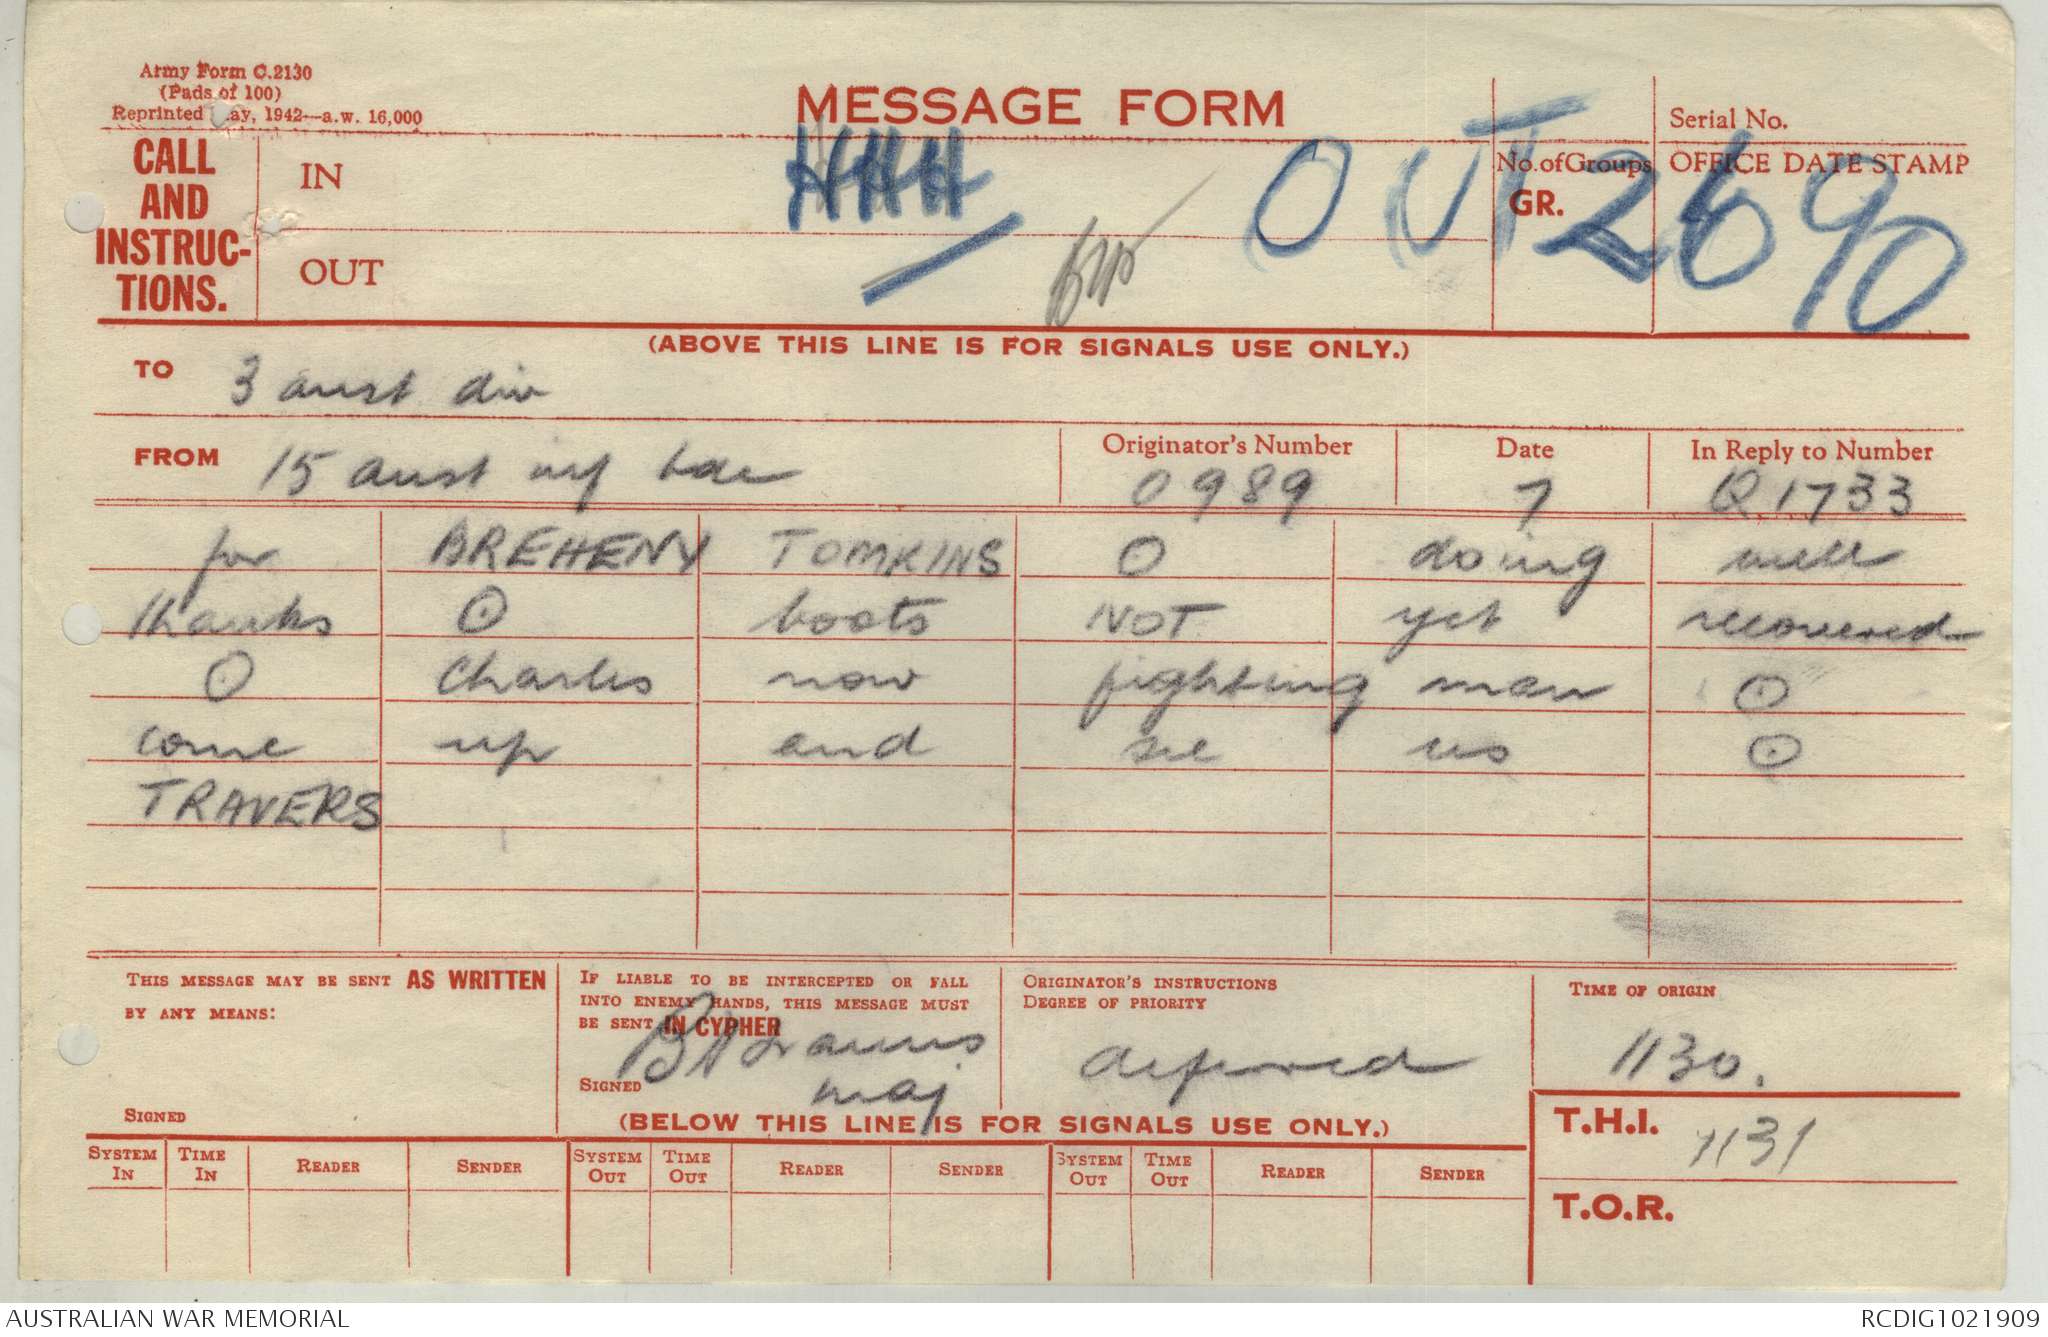 Army Form C.2130
(Pads of 100)
Reprinted May, 1942—a.w. 16,000
MESSAGE FORM
Serial No.
CALL AND INSTRUC-TIONS.
IN
OUT
OUT 2690
No. of Groups
GR.
OFFICE DATE STAMP
(ABOVE THIS LINE IS FOR SIGNALS USE ONLY.)
TO 3 aust div
FROM 15 aust inf bde
Originator's Number 0989
Date 7
In Reply to Number Q1733
for BREHENY TOMKINS ⊙ doing well
thanks ⊙ boots NOT yet recovered
⊙ Charles now fighting man ⊙
come up and see us ⊙
TRAVERS
THIS MESSAGE MAY BE SENT AS WRITTEN
BY ANY MEANS:
SIGNED
IF LIABLE TO BE INTERCEPTED OR FALL
INTO ENEMY HANDS, THIS MESSAGE MUST
BE SENT IN CYPHER
SIGNED
maj
ORIGINATOR'S INSTRUCTIONS
DEGREE OF PRIORITY
deferred
TIME OF ORIGIN
1130.
(BELOW THIS LINE IS FOR SIGNALS USE ONLY.)
T.H.I. 1131
T.O.R.
SYSTEM IN TIME IN READER SENDER SYSTEM OUT TIME OUT READER SENDER SYSTEM OUT TIME OUT READER SENDER
AUSTRALIAN WAR MEMORIAL
RCDIG1021909